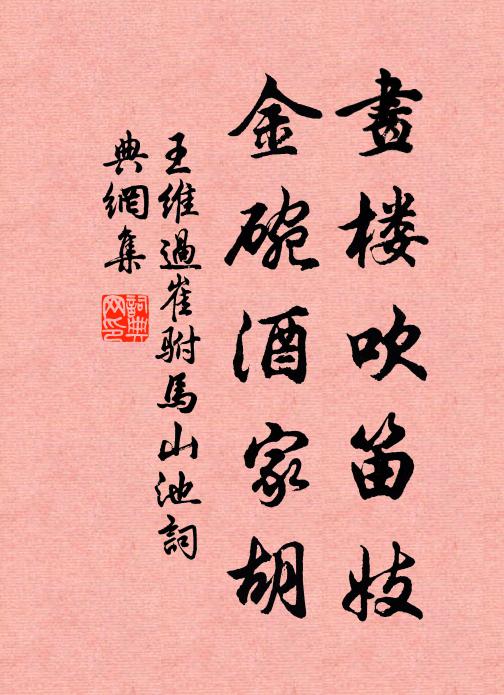 畫楼吹笛妓
金碗酒家胡
王維過崔駙馬山池詞
典網集
詞典
网印